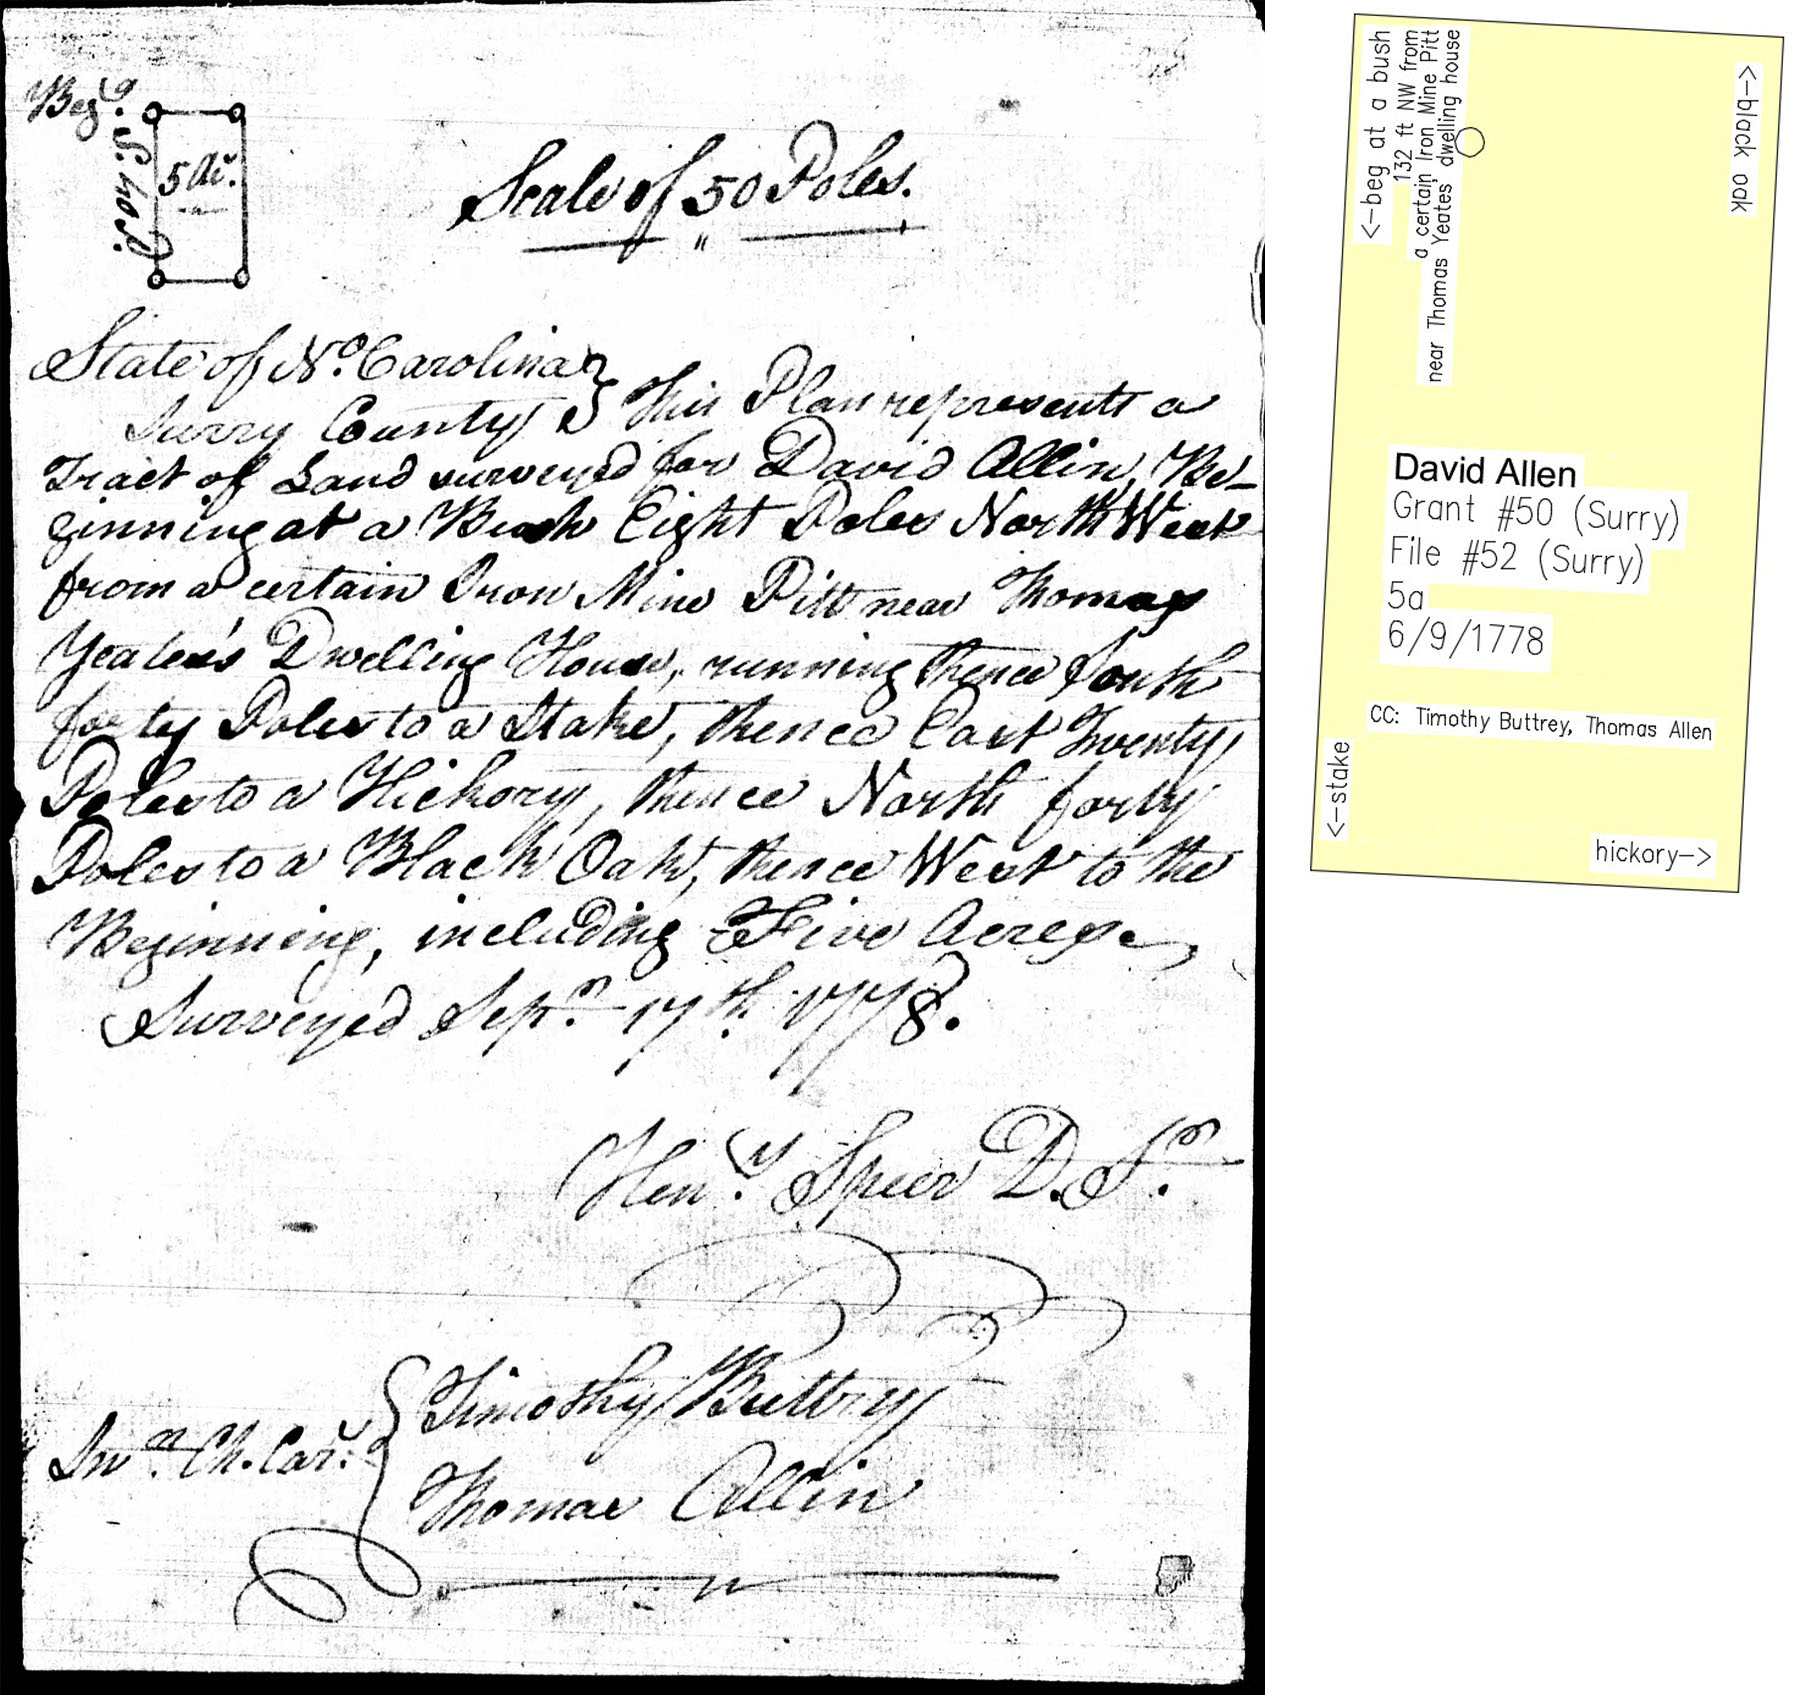 Begg.
S. 40 P.
5 Ac.
Scale of 50 Poles.
State of No. Carolina
Surry County } This Plan represents a
Tract of Land surveyed for David Allin, Be-
ginning at a Bush Eight Poles North West
from a certain Iron Mine Pitt near Thomas
Yeates's Dwelling House, running thence South
forty Poles to a Stake, thence East Twenty
Poles to a Hickory, thence North forty
Poles to a Black Oak, thence West to the
Beginning, including Five Acres,
Surveyed Sepr. 17th. 1778.
Heny. Speer D. Sr.
Swn. Ch. Car. {
Timothy Buttry
Thomas Allin
<-beg at a bush
132 ft NW from
a certain Iron Mine Pitt
near Thomas Yeates dwelling house
<-black oak
David Allen
Grant #50 (Surry)
File #52 (Surry)
5a
6/9/1778
CC: Timothy Buttrey, Thomas Allen
<-stake
hickory->